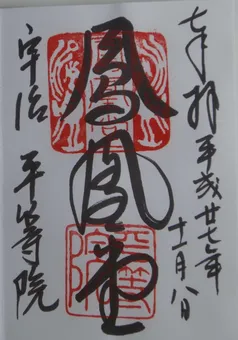 奉拝 平成廿七年
十一月八日
鳳凰堂
宇治 平等院